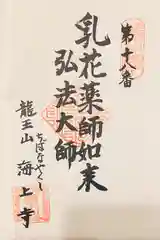 第十八番
乳花薬師如来
弘法大師
ちばなやくし
龍王山
海上寺